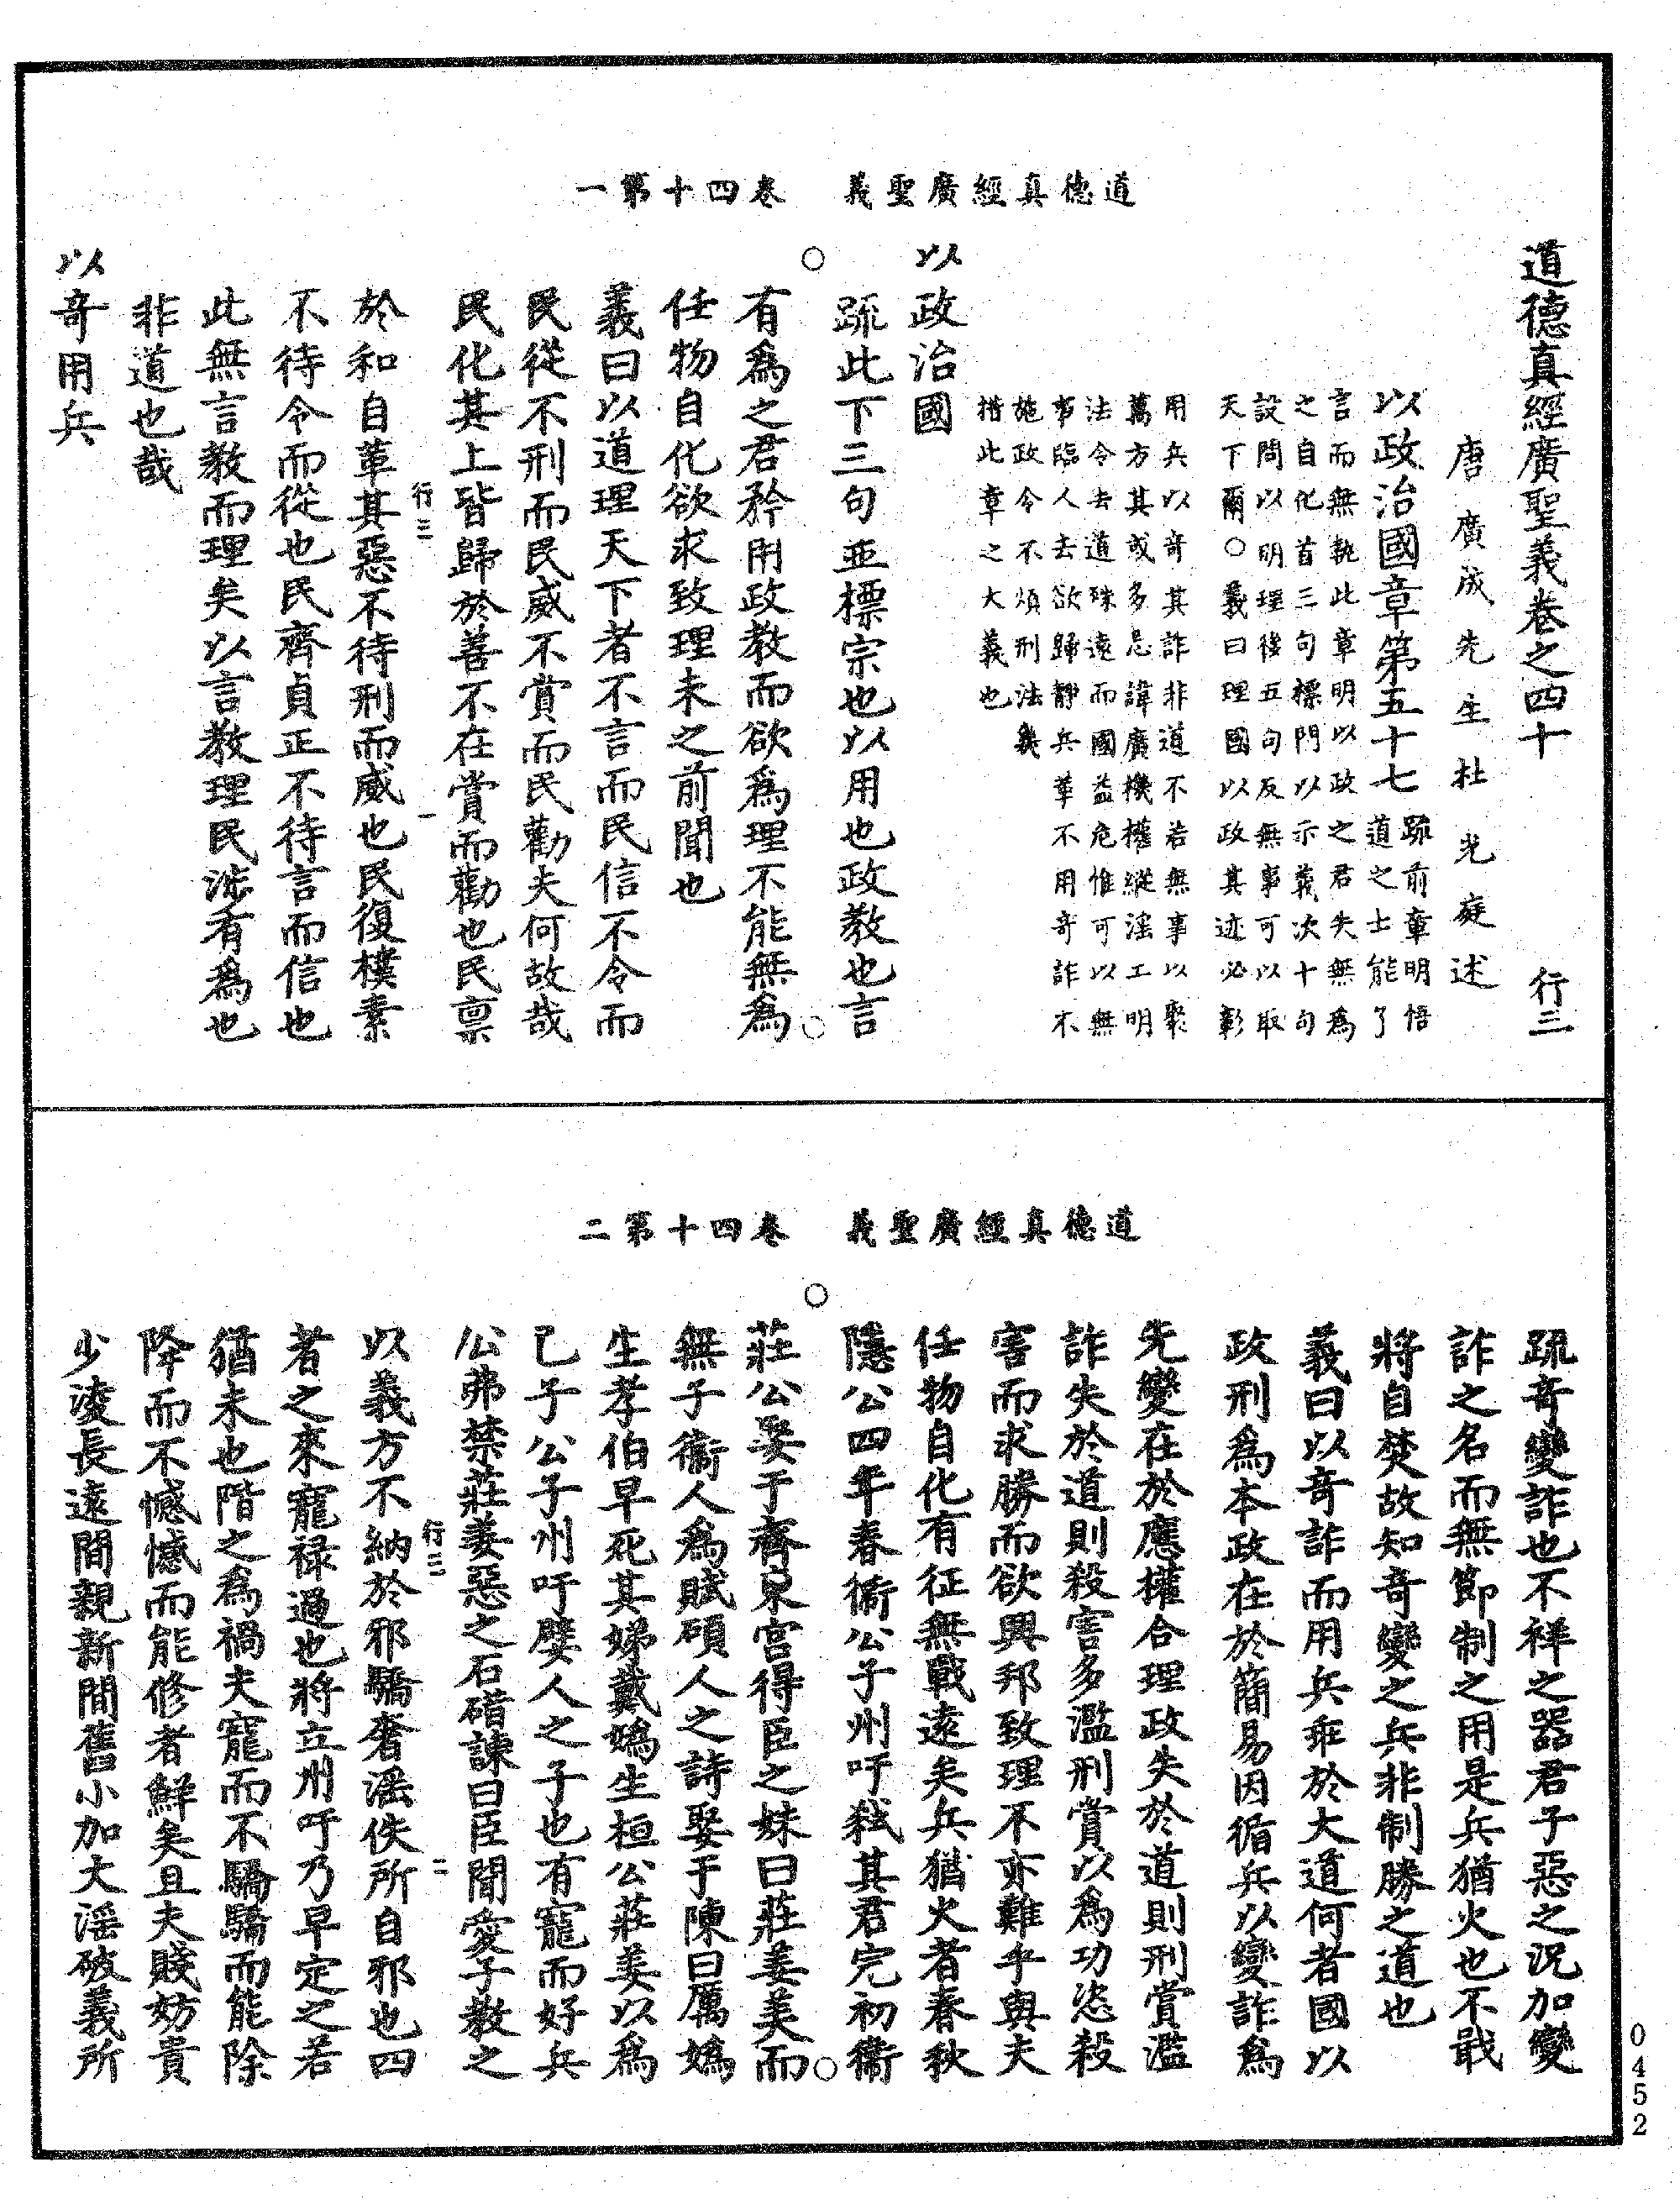 道德真經廣聖義卷四十第一
道德真經廣聖義卷之四十 行三
唐廣成先生杜光庭述
以政治國章第五十七
疏前章明悟
道之士能了
言而無執此章明以政之君失無為
之自化首三句標門以示義次十句
設問以明理後五句反無事可以取
天下爾○義曰理國以政其迹必彰
用兵以奇其詐非道不若無事以聚
萬方其或多忌諱廣機權縱淫工明
法令去道殊遠而國益危惟可以無
事臨人去欲歸靜兵革不用奇詐不
施政令不煩刑法幾
措此章之大義也
以政治國
疏此下三句並標宗也以用也政教也言
有為之君矜用政教而欲為理不能無為
任物自化欲求致理未之前聞也
義曰以道理天下者不言而民信不令而
民從不刑而民威不賞而民勸夫何故哉
民化其上皆歸於善不在賞而勸也民禀
行三 一
於和自革其惡不待刑而威也民復樸素
不待令而從也民齊貞正不待言而信也
此無言教而理矣以言教理民涉有為也
非道也哉
以奇用兵
道德真經廣聖義卷四十第二
疏奇變詐也不祥之器君子惡之況加變
詐之名而無節制之用是兵猶火也不戢
將自焚故知奇變之兵非制勝之道也
義曰以奇詐而用兵乖於大道何者國以
政刑為本政在於簡易因循兵以變詐為
先變在於應權合理政失於道則刑賞濫
詐失於道則殺害多濫刑賞以為功恣殺
害而求勝而欲興邦致理不亦難乎與夫
任物自化有征無戰遠矣兵猶火者春秋
隱公四年春衛公子州吁弒其君完初衛
莊公娶于齊東宮得臣之妹曰莊姜美而
無子衛人為賦碩人之詩娶于陳曰厲媯
生孝伯早死其娣戴媯生桓公莊姜以為
己子公子州吁嬖人之子也有寵而好兵
公弗禁莊姜惡之石碏諫曰臣聞愛子教之
行三 二
以義方不納於邪驕奢淫佚所自邪也四
者之來寵祿過也將立州吁乃早定之若
猶未也階之為禍夫寵而不驕驕而能降
降而不憾憾而能修者鮮矣且夫賤妨貴
少淩長遠間親新間舊小加大淫破義所
0452